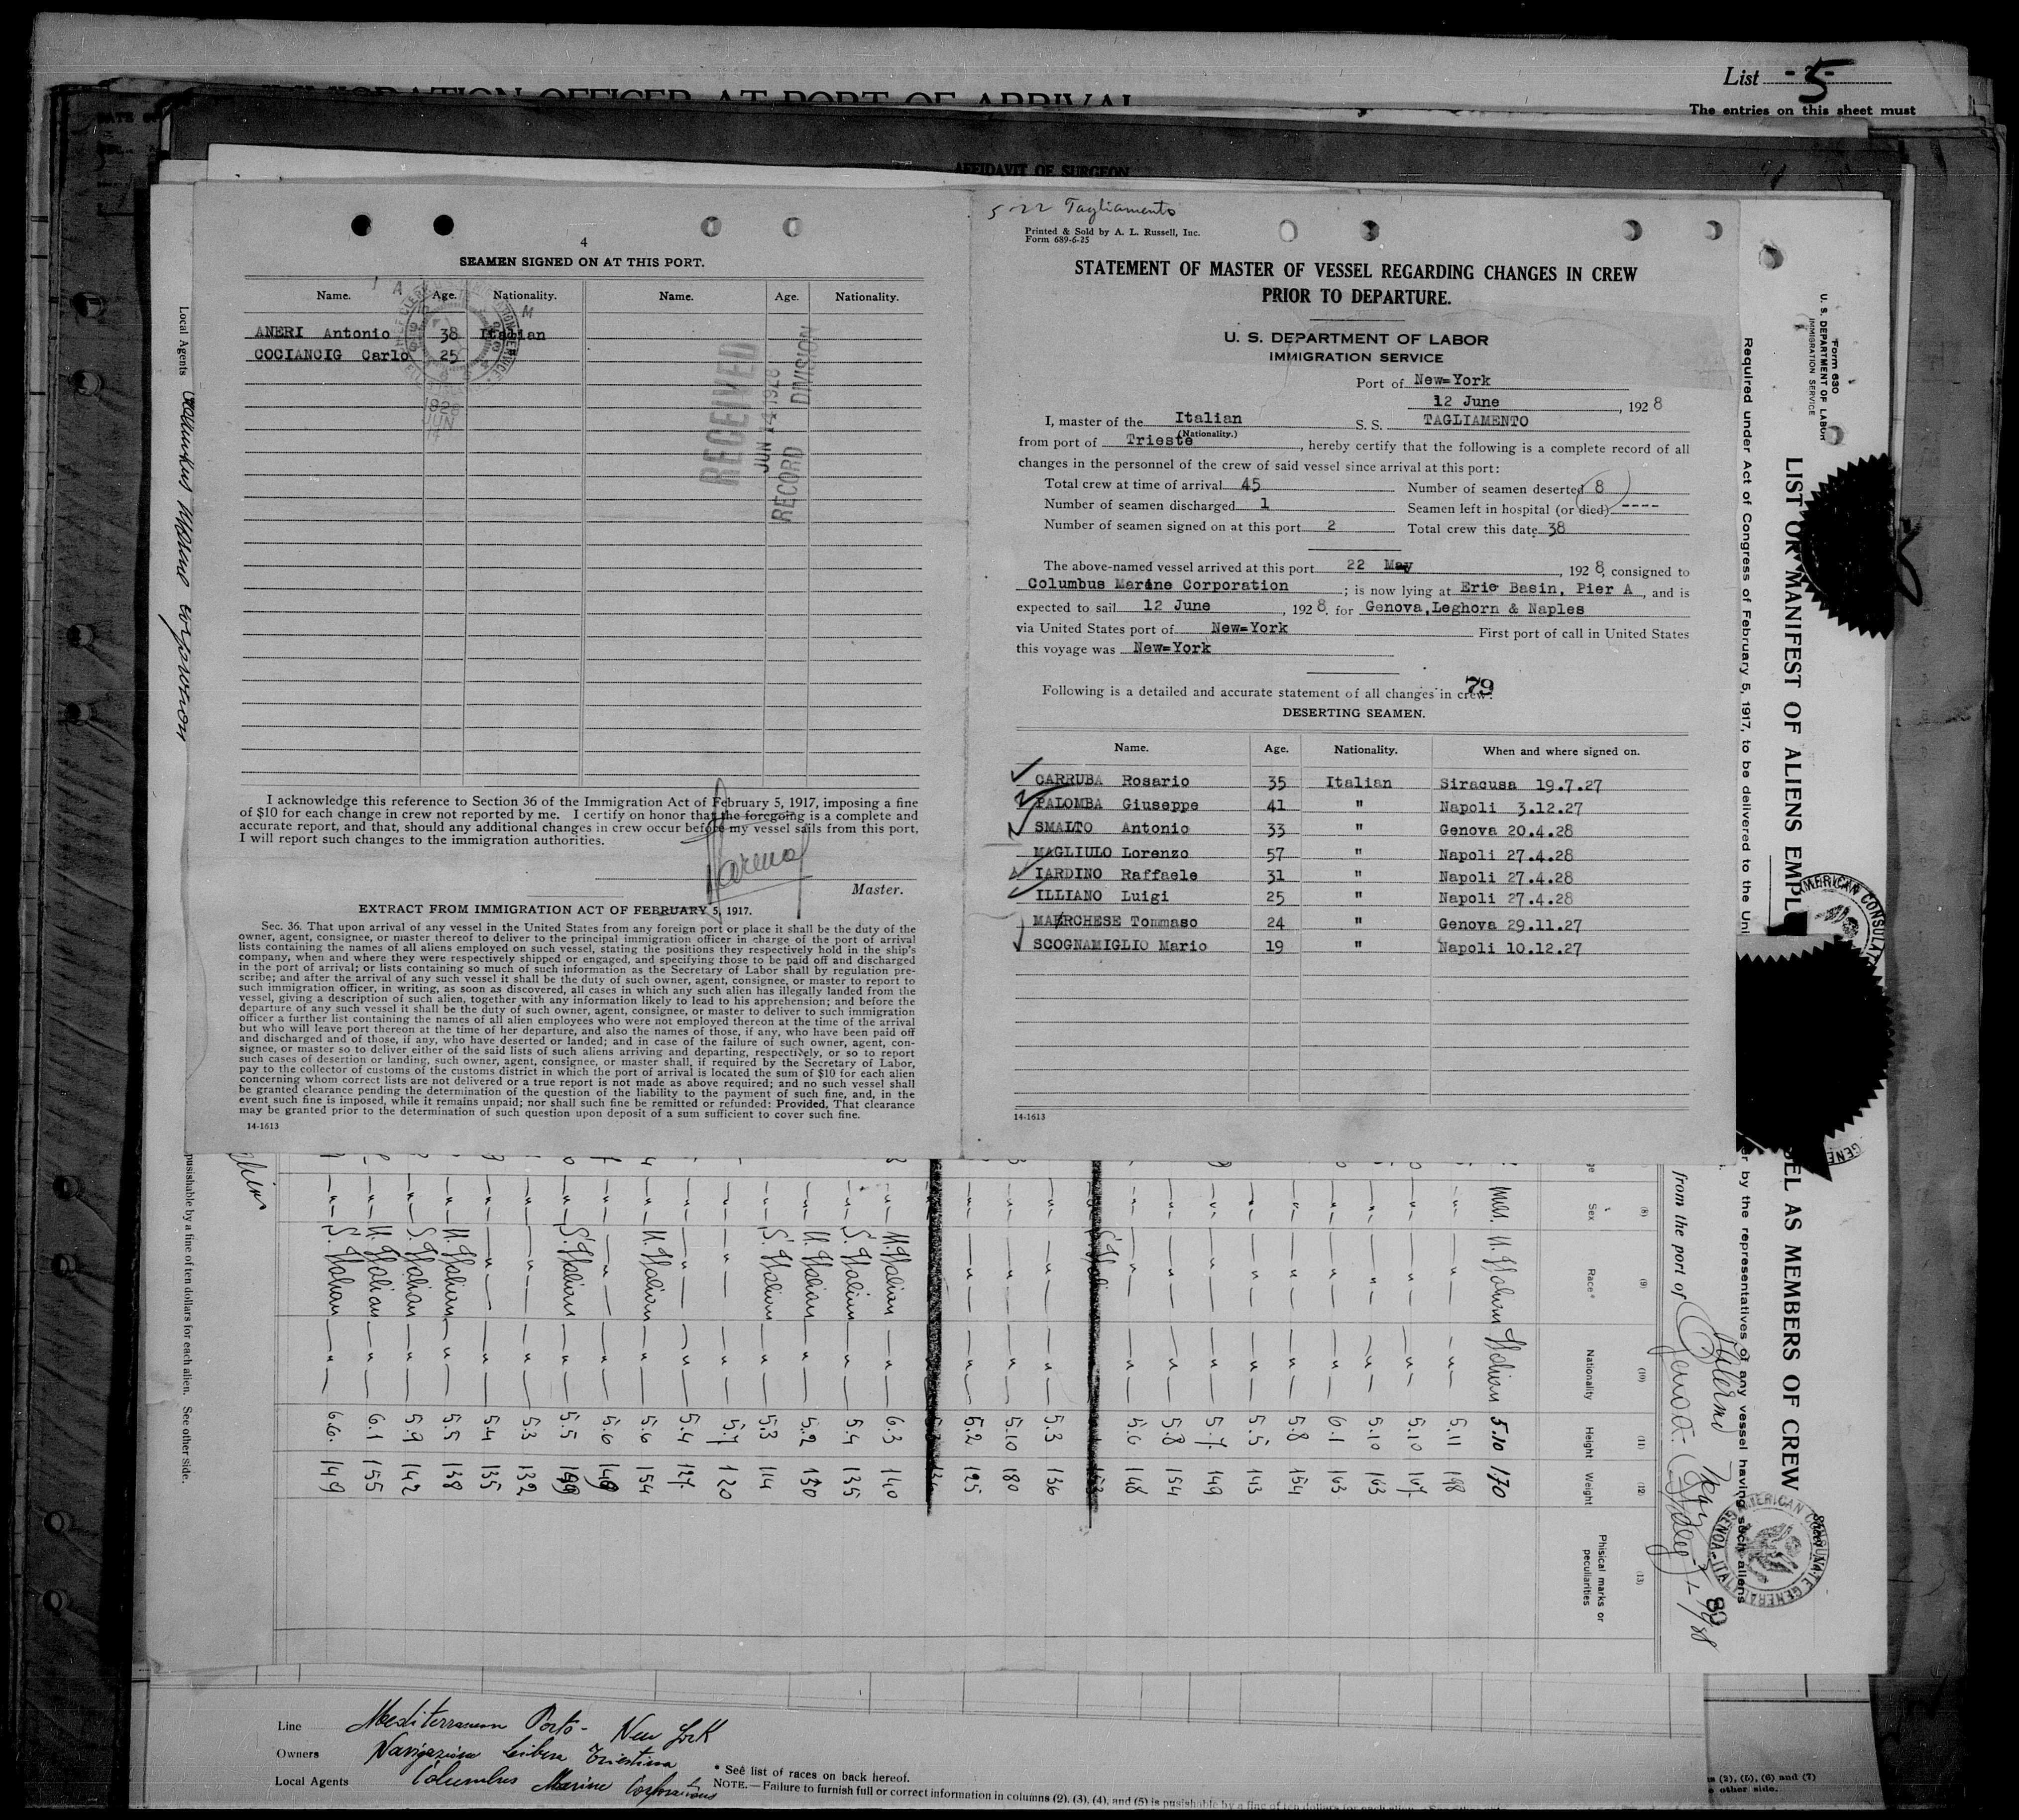 List - 5 -
The entries on this sheet must
IMMIGRATION OFFICER AT PORT OF ARRIVAL
AFFIDAVIT OF SURGEON
4
SEAMEN SIGNED ON AT THIS PORT.
Name. Age. Nationality. Name. Age. Nationality.
ANERI Antonio 38 Italian
COCIANCIG Carlo 25
1928
JUN
14
RECEIVED
JUN 14 1928
RECORD DIVISION
I acknowledge this reference to Section 36 of the Immigration Act of February 5, 1917, imposing a fine
of $10 for each change in crew not reported by me. I certify on honor that the foregoing is a complete and
accurate report, and that, should any additional changes in crew occur before my vessel sails from this port,
I will report such changes to the immigration authorities.
Master.
EXTRACT FROM IMMIGRATION ACT OF FEBRUARY 5, 1917.
Sec. 36. That upon arrival of any vessel in the United States from any foreign port or place it shall be the duty of the
owner, agent, consignee, or master thereof to deliver to the principal immigration officer in charge of the port of arrival
lists containing the names of all aliens employed on such vessel, stating the positions they respectively hold in the ship's
company, when and where they were respectively shipped or engaged, and specifying those to be paid off and discharged
in the port of arrival; or lists containing so much of such information as the Secretary of Labor shall by regulation pre-
scribe; and after the arrival of any such vessel it shall be the duty of such owner, agent, consignee, or master to report to
such immigration officer, in writing, as soon as discovered, all cases in which any such alien has illegally landed from the
vessel, giving a description of such alien, together with any information likely to lead to his apprehension; and before the
departure of any such vessel it shall be the duty of such owner, agent, consignee, or master to deliver to such immigration
officer a further list containing the names of all alien employees who were not employed thereon at the time of the arrival
but who will leave port thereon at the time of her departure, and also the names of those, if any, who have been paid off
and discharged and of those, if any, who have deserted or landed; and in case of the failure of such owner, agent, con-
signee, or master so to deliver either of the said lists of such aliens arriving and departing, respectively, or so to report
such cases of desertion or landing, such owner, agent, consignee, or master shall, if required by the Secretary of Labor,
pay to the collector of customs of the customs district in which the port of arrival is located the sum of $10 for each alien
concerning whom correct lists are not delivered or a true report is not made as above required; and no such vessel shall
be granted clearance pending the determination of the question of the liability to the payment of such fine, and, in the
event such fine is imposed, while it remains unpaid; nor shall such fine be remitted or refunded: Provided, That clearance
may be granted prior to the determination of such question upon deposit of a sum sufficient to cover such fine.
14-1613
5-22 Tagliamento
Printed & Sold by A. L. Russell, Inc.
Form 689-6-25
STATEMENT OF MASTER OF VESSEL REGARDING CHANGES IN CREW
PRIOR TO DEPARTURE.
U. S. DEPARTMENT OF LABOR
IMMIGRATION SERVICE
Port of New=York
12 June, 1928
I, master of the Italian S. S. TAGLIAMENTO
(Nationality.)
from port of Trieste, hereby certify that the following is a complete record of all
changes in the personnel of the crew of said vessel since arrival at this port:
Total crew at time of arrival 45 Number of seamen deserted 8
Number of seamen discharged 1 Seamen left in hospital (or died) ----
Number of seamen signed on at this port 2 Total crew this date 38
The above-named vessel arrived at this port 22 May, 1928, consigned to
Columbus Marine Corporation; is now lying at Erie Basin, Pier A, and is
expected to sail 12 June, 1928, for Genova,Leghorn & Naples
via United States port of New=York First port of call in United States
this voyage was New=York
79
Following is a detailed and accurate statement of all changes in crew:
DESERTING SEAMEN.
Name. Age. Nationality. When and where signed on.
CARRUBA Rosario 35 Italian Siracusa 19.7.27
PALOMBA Giuseppe 41 " Napoli 3.12.27
SMALTO Antonio 33 " Genova 20.4.28
MAGLIULO Lorenzo 57 " Napoli 27.4.28
IARDINO Raffaele 31 " Napoli 27.4.28
ILLIANO Luigi 25 " Napoli 27.4.28
MAERCHESE Tommaso 24 " Genova 29.11.27
SCOGNAMIGLIO Mario 19 " Napoli 10.12.27
14-1613
Local Agents Columbus Marine Corporation
pusishable by a fine of ten dollars for each alien. See other side.
Form 630
U. S. DEPARTMENT OF LABOR
IMMIGRATION SERVICE
LIST OR MANIFEST OF ALIENS EMPL
SEL AS MEMBERS OF CREW
Required under Act of Congress of February 5, 1917, to be delivered to the Uni
er by the representatives of any vessel having such aliens
from the port of Genova
AMERICAN CONSULATE GENERAL
GENOA-ITALY
80
(8) (9) (10) (11) (12) (13)
Sex Race* Nationality Height Weight Phisical marks or peculiarities
mas. N. Italian Italian 5.10 170
" " " 5.11 198
" " " 5.10 167
" " " 5.10 163
" " " 6.1 163
" " " 5.8 154
" " " 5.5 143
" " " 5.7 149
" " " 5.8 154
" " " 5.6 148
S. Italian 153
" " " 5.3 136
" " " 5.10 180
" " " 5.2 125
" N. Italian " 6.3 140
" S. Italian " 5.4 135
" N. Italian " 5.2 130
" S. Italian " 5.3 114
" " " 5.7 120
" " " 5.4 127
" N. Italian " 5.6 154
" " " 5.6 149
" S. Italian " 5.5
" " " 5.3 132
" " " 5.4 135
" N. Italian " 5.5 138
" S. Italian " 5.9 142
" N. Italian " 6.1 155
" S. Italian " 6.6 149
Line Mediterranean Ports - New York
Owners Navigazione Libera Triestina
Local Agents Columbus Marine Corporations
* See list of races on back hereof.
NOTE.—Failure to furnish full or correct information in columns (2), (3), (4), and (5) is pusishable by a fine of ten dollars for each alien
ns (2), (5), (6) and (7)
e other side.